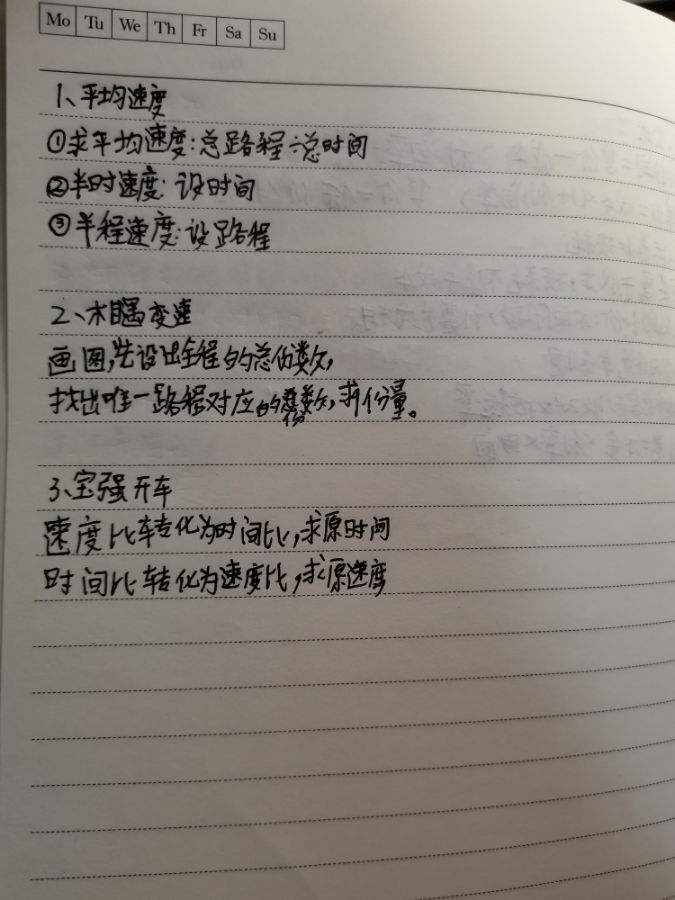 Mo Tu We Th Fr Sa Su
1、平均速度
①求平均速度:总路程÷总时间
②半时速度:设时间
③半程速度:设路程
2、相遇变速
画图,先设出全程的总份数,
找出唯一路程对应的总份数,求份量。
3、宝强开车
速度比转化为时间比,求原时间
时间比转化为速度比,求原速度